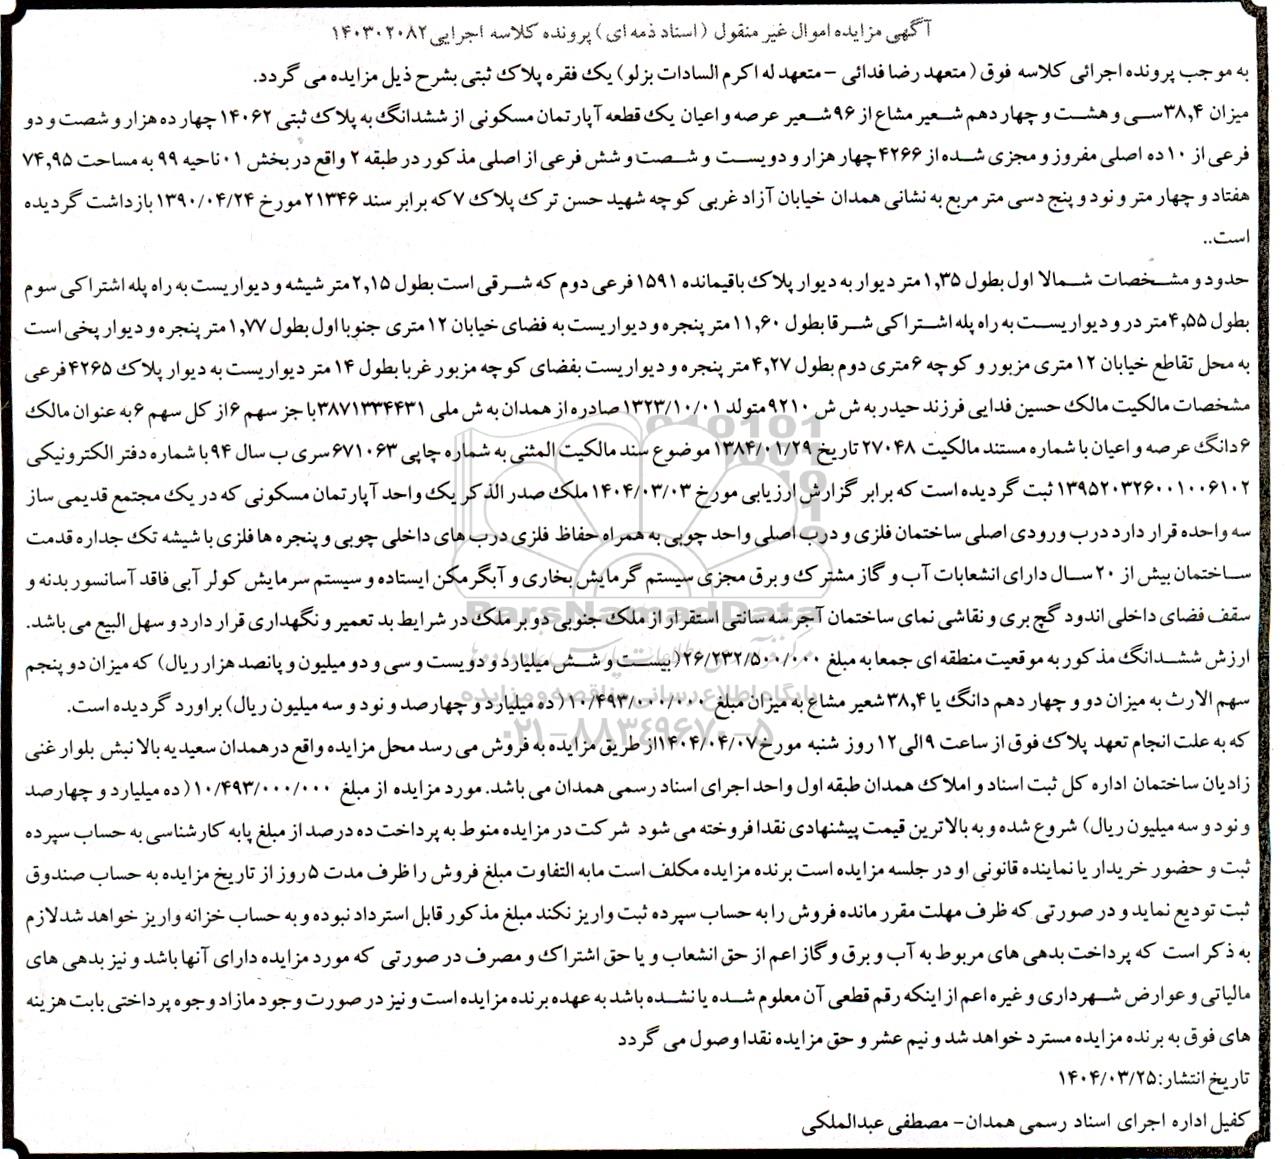 آگهی مزایده اموال غیر منقول (اسناد ذمه ای) پرونده کلاسه اجرایی ۱۴۰۳۰۲۰۸۲
به موجب پرونده اجرائی کلاسه فوق (متعهد رضا فدائی - متعهد له اکرم السادات بزلو) یک فقره پلاک ثبتی بشرح ذیل مزایده می گردد.
میزان ۳۸,۴سی و هشت و چهار دهم شعیر مشاع از ۹۶ شعیر عرصه و اعیان یک قطعه آپارتمان مسکونی از ششدانگ به پلاک ثبتی ۱۴۰۶۲ چهار ده هزار و شصت و دو
فرعی از ۱۰ ده اصلی مفروز و مجزی شده از ۴۲۶۶چهار هزار و دویست و شصت و شش فرعی از اصلی مذکور در طبقه ۲ واقع در بخش ۰۱ ناحیه ۹۹ به مساحت ۷۴,۹۵
هفتاد و چهار متر و نود و پنج دسی متر مربع به نشانی همدان خیابان آزاد غربی کوچه شهید حسن ترک پلاک ۷ که برابر سند ۲۱۳۴۶ مورخ ۱۳۹۰/۰۴/۲۴ بازداشت گردیده
است..
حدود و مشخصات شمالا اول بطول ۱,۳۵ متر دیوار به دیوار پلاک باقیمانده ۱۵۹۱ فرعی دوم که شرقی است بطول ۲,۱۵ متر شیشه و دیواریست به راه پله اشتراکی سوم
بطول ۴,۵۵ متر در و دیواریست به راه پله اشتراکی شرقا بطول ۱۱,۶۰ متر پنجره و دیواریست به فضای خیابان ۱۲ متری جنوبا اول بطول ۱,۷۷ متر پنجره و دیوار پخی است
به محل تقاطع خیابان ۱۲ متری مزبور و کوچه ۶ متری دوم بطول ۴,۲۷ متر پنجره و دیواریست بفضای کوچه مزبور غربا بطول ۱۴ متر دیواریست به دیوار پلاک ۴۲۶۵ فرعی
مشخصات مالکیت مالک حسین فدایی فرزند حیدر به ش ش ۹۲۱۰ متولد ۱۳۲۳/۱۰/۰۱ صادره از همدان به ش ملی ۳۸۷۱۳۳۴۴۳۱ با جز سهم ۶ از کل سهم ۶ به عنوان مالک
۶ دانگ عرصه و اعیان با شماره مستند مالکیت ۲۷۰۴۸ تاریخ ۱۳۸۴/۰۱/۲۹ موضوع سند مالکیت المثنی به شماره چاپی ۶۷۱۰۶۳ سری ب سال ۹۴ با شماره دفتر الکترونیکی
۱۳۹۵۲۰۳۲۶۰۰۱۰۰۶۱۰۲ ثبت گردیده است که برابر گزارش ارزیابی مورخ ۱۴۰۴/۰۳/۰۳ ملک صدر الذکر یک واحد آپارتمان مسکونی که در یک مجتمع قدیمی ساز
سه واحده قرار دارد درب ورودی اصلی ساختمان فلزی و درب اصلی واحد چوبی به همراه حفاظ فلزی درب های داخلی چوبی و پنجره ها فلزی با شیشه تک جداره قدمت
ساختمان بیش از ۲۰ سال دارای انشعابات آب و گاز مشترک و برق مجزی سیستم گرمایش بخاری و آبگرمکن ایستاده و سیستم سرمایش کولر آبی فاقد آسانسور بدنه و
سقف فضای داخلی اندود گچ بری و نقاشی نمای ساختمان آجر سه سانتی استقرار از ملک جنوبی دو بر ملک در شرایط بد تعمیر و نگهداری قرار دارد و سهل البیع می باشد.
ارزش ششدانگ مذکور به موقعیت منطقه ای جمعا به مبلغ ۲۶/۲۳۲/۵۰۰/۰۰۰ (بیست و شش میلیارد و دویست و سی و دو میلیون و پانصد هزار ریال) که میزان دو پنجم
سهم الارث به میزان دو و چهار دهم دانگ یا ۳۸,۴ شعیر مشاع به میزان مبلغ ۱۰/۴۹۳/۰۰۰/۰۰۰ (ده میلیارد و چهارصد و نود و سه میلیون ریال) براورد گردیده است.
که به علت انجام تعهد پلاک فوق از ساعت ۹ الی ۱۲ روز شنبه مورخ ۱۴۰۴/۰۴/۰۷ از طریق مزایده به فروش می رسد محل مزایده واقع درهمدان سعیدیه بالا نبش بلوار غنی
زادیان ساختمان اداره کل ثبت اسناد و املاک همدان طبقه اول واحد اجرای اسناد رسمی همدان می باشد. مورد مزایده از مبلغ ۱۰/۴۹۳/۰۰۰/۰۰۰ (ده میلیارد و چهارصد
و نود و سه میلیون ریال) شروع شده و به بالاترین قیمت پیشنهادی نقدا فروخته می شود شرکت در مزایده منوط به پرداخت ده درصد از مبلغ پایه کارشناسی به حساب سپرده
ثبت و حضور خریدار یا نماینده قانونی او در جلسه مزایده است برنده مزایده مکلف است مابه التفاوت مبلغ فروش را ظرف مدت ۵ روز از تاریخ مزایده به حساب صندوق
ثبت تودیع نماید و در صورتی که ظرف مهلت مقرر مانده فروش را به حساب سپرده ثبت واریز نکند مبلغ مذکور قابل استرداد نبوده و به حساب خزانه واریز خواهد شد لازم
به ذکر است که پرداخت بدهی های مربوط به آب و برق و گاز اعم از حق انشعاب و یا حق اشتراک و مصرف در صورتی که مورد مزایده دارای آنها باشد و نیز بدهی های
مالیاتی و عوارض شهرداری و غیره اعم از اینکه رقم قطعی آن معلوم شده یا نشده باشد به عهده برنده مزایده است و نیز در صورت وجود مازاد وجوه پرداختی بابت هزینه
های فوق به برنده مزایده مسترد خواهد شد و نیم عشر و حق مزایده نقدا وصول می گردد
تاریخ انتشار: ۱۴۰۴/۰۳/۲۵
کفیل اداره اجرای اسناد رسمی همدان - مصطفی عبدالملکی
ParsNamadData
پایگاه اطلاع رسانی مناقصه و مزایده
۰۲۱-۸۸۳۴۹۶۷۰-۵